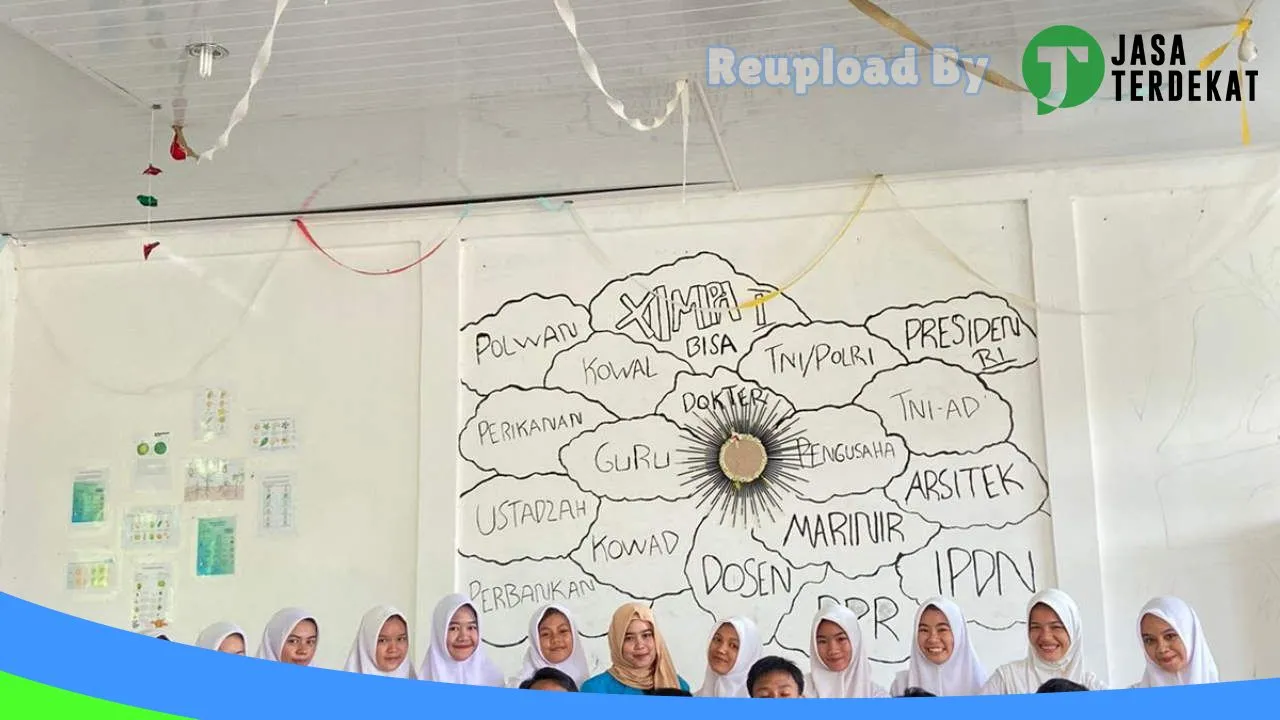 Reupload By
JASA
TERDEKAT
XI MIPA 1
BISA
POLWAN
KOWAL
TNI/POLRI
PRESIDEN
RI
DOKTER
TNI-AD
PERIKANAN
GURU
PENGUSAHA
ARSITEK
USTADZAH
KOWAD
MARINIR
PERBANKAN
DOSEN
IPDN